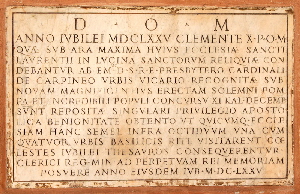 D · O · M
ANNO IVBILEI MDCLXXV CLEMENTE X·P·O·M
QVÆ SVB ARA MAXIMA HVIVS ECCLESIÆ SANCTI
LAVRENTII IN LVCINA SANCTORVM RELIQVIÆ CON
DEBANTVR AB EM·D·S·R·E·PRESBYTERO CARDINALI
DE CARPINEO VRBIS VICARIO RECOGNITÆ SVB
NOVAM MAGNIFICENTIVS ERECTAM SOLEMNI POM
PA ET INCREDIBILI POPVLI CONCVRSV XI KAL·DECEMP
SVNT REPOSITÆ SINGVLARI PRIVILEGIO APOSTO
LICA BENIGNITATE OBTENTO VT QVICVMQ·ECCLE
SIAM HANC SEMEL INFRA OCTIDVVM VNA CVM
QVATVOR VRBIS BASILICIS RITE VISITARENT CŒ
LESTES IVBILEI THESAVROS CONSEQVERENTVR
CLERICI REG·MIN·AD PERPETVAM REI MEMORIAM
POSVERE ANNO EIVSDEM IVB·MDCLXXV